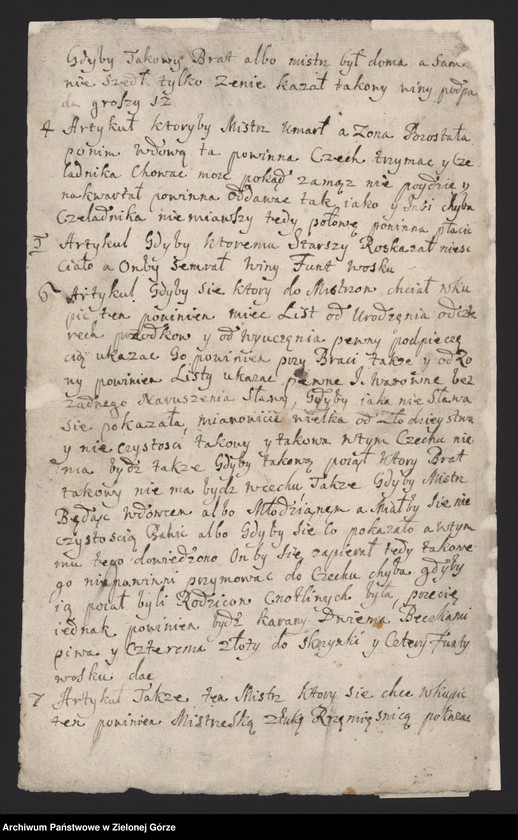 Gdyby Takowy Brat albo mistr był doma a sam
nie szedł tylko zenie kazał takony winy podpa
da groszy 12
4 Artykuł ktoryby Mistrz umarł a Zona Pozostała
ponim wdową ta powinna Czech trzymac y cze
ladnika Chowac moze pokąd zamąz nie poydzie y
na kwartał powinna oddawac tak jako y Insi chyba
Czeladnika niemiawszy tedy połowę powinna płacic
5 Artykul Gdyby ktoremu Starszy Roskazał niesc
Ciało a Onby Semrał winy Funt wosku
6 Artykul Gdyby sie ktory do Mistrzow chciał wku
pić ten powinien miec List od Urodzęnia odczte
rech przodkow y od wyuczęnia pewny podpiecę
cią ukazac Go powinien przy Braci takze y od Zo
ny powinien Listy ukazac pewne J. warowne bez
zadnego Naruszenia Sławy, Gdyby jaka nie Sława
sie pokazała, mianowicie wielka od złodzieystwa
y nie czystosci takowy y takowa wtym Czechu nie
ma bydz takze Gdyby takową poiął ktory Brat
takowy nie ma bydz wcechu Takze Gdyby Mistr
Będąc wdowcem albo Młodzianem a Miałby Sie nie
czystością Bawic albo Gdyby sie to pokazało a wtym
mu tego dowiedziono On by się zapierał tedy takowe
go niepowinni przymowac do Czechu chyba gdyby
ią poiął byli Rodzicow Cnotliwych była, przecię
iednak powinien bydź karany Dwiema Beczkami
piwa y Czterema złoty do skrzynki y Cztery Funty
wosku dac
7 Artykuł Takze ten Mistr ktory sie chce wkupic
ten powinien Mistrzeską sztukę Rzęmięsnicą pokazac
Archiwum Państwowe w Zielonej Górze